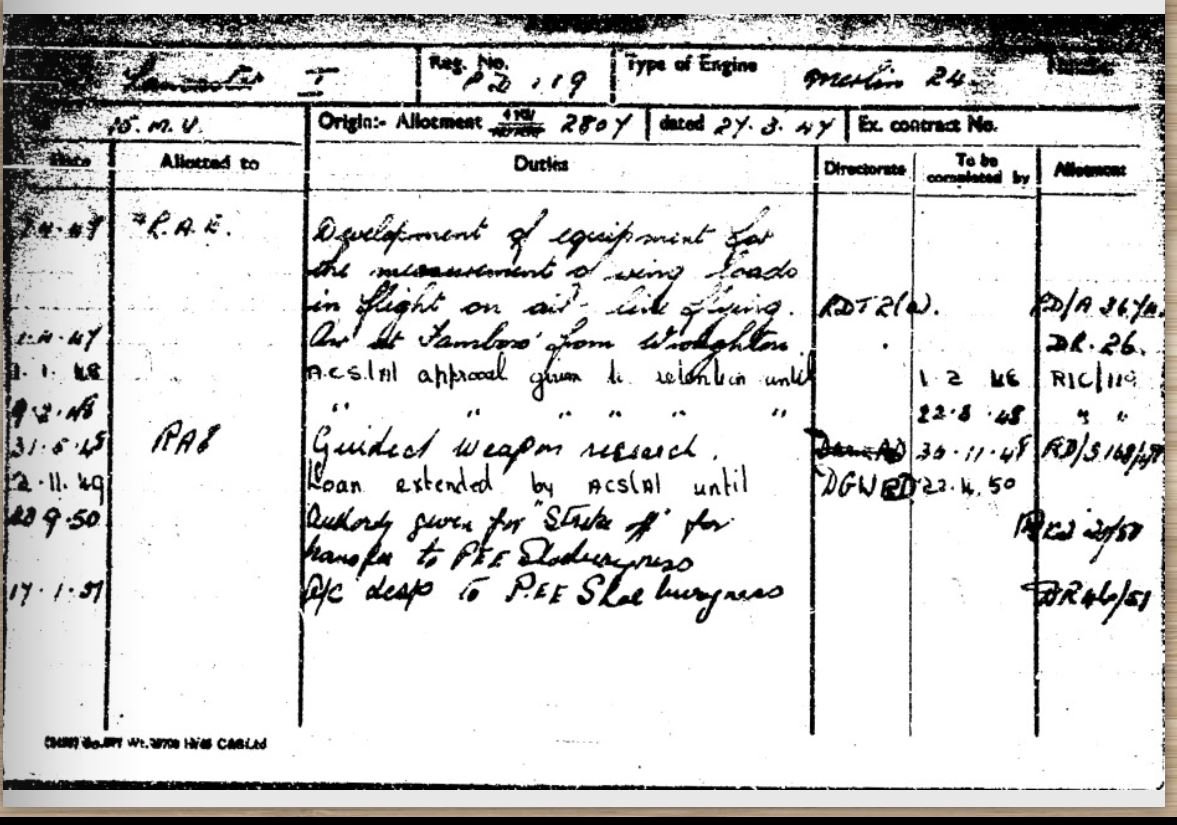 Lancaster I Reg. No. PD.119 Type of Engine Merlin 24
15. M.U. Origin:- Allotment 2807 dated 27.3.47 Ex. contract No.
Date Allotted to Duties Directorate To be completed by Allotment
R.A.E. Development of equipment for
the measurement of wing loads
in flight on air-line flying. RDT2(W).
Arr at Farnboro' from Wroughton. DR. 26.
1. 1. 48 A.C.S.(A) approval given to retention until 1 2 48 RIC/119
9.2.48 " " " " " " 22.8.48 " "
31.5.48 RAE Guided weapon research. 30.11.48
2.11.49 Loan extended by ACS(A) until DGWRD 22.4.50
9.50 Authority given for "Strike off" for
transfer to PEE Shoeburyness
17.1.51 A/c desp to P.EE Shoeburyness DR46/51